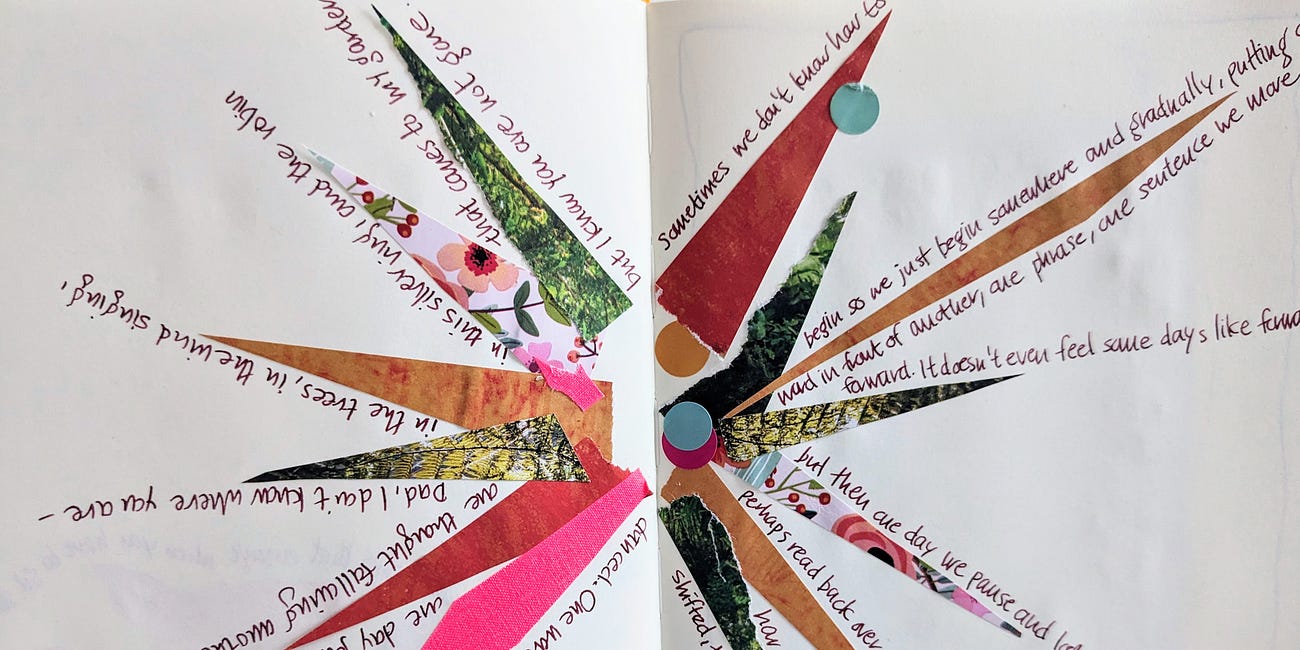 sometimes we don't know how to
begin so we just begin somewhere and gradually, putting
ward in front of another, one phrase, one sentence we move
forward. It doesn't even feel some days like
but then one day we pause and
perhaps read back over
how
shifted,
danced. One
one day
one thought following
Dad, I don't know where you are –
in the trees, in the wind singing,
in this silver mug, and the robin
that comes to my garden
but I know you are not gone